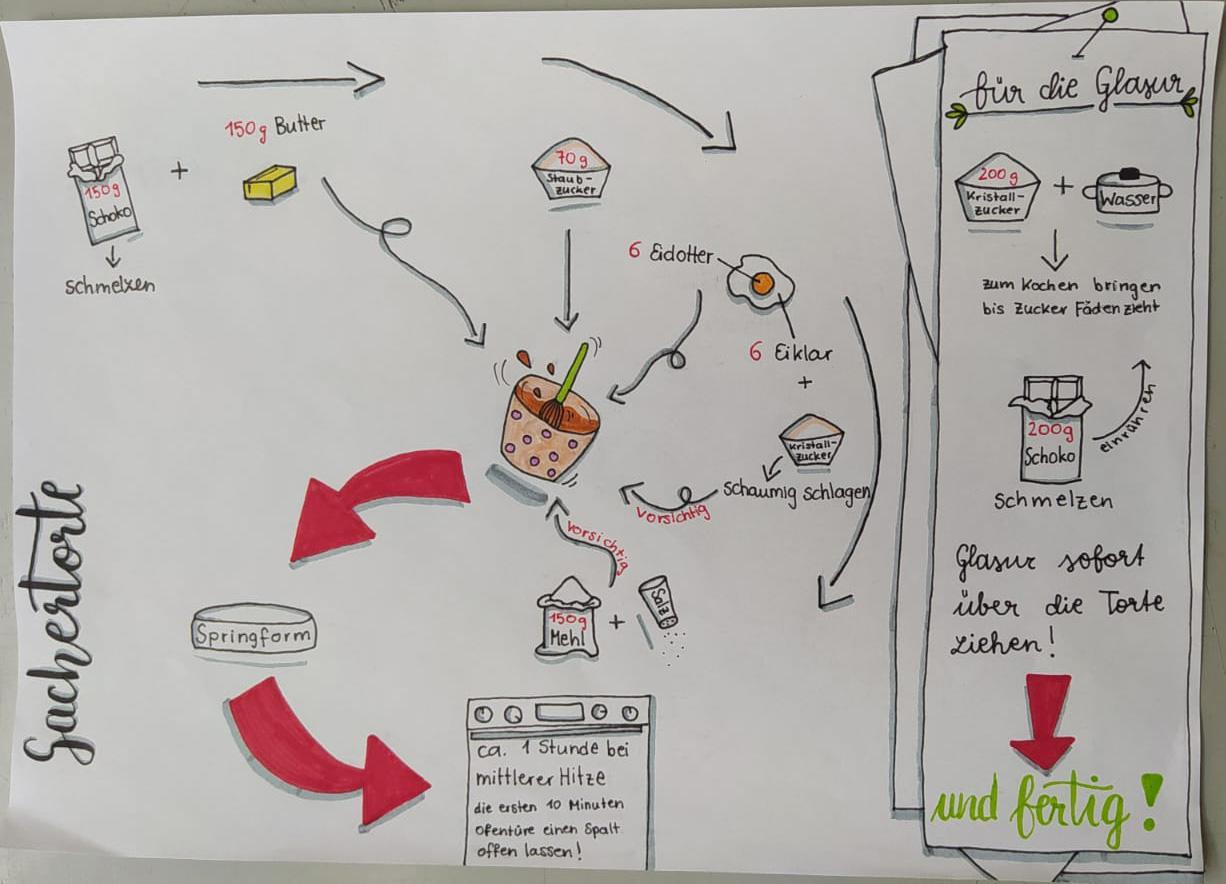 Sachertorte
150g
Schoko
schmelzen
+
150g Butter
70g
Staub-
zucker
6 Eidotter
6 Eiklar
+
Kristall-
zucker
schaumig schlagen
vorsichtig
vorsichtig
150g
Mehl
+
Salz
Springform
ca. 1 Stunde bei
mittlerer Hitze
die ersten 10 Minuten
Ofentüre einen Spalt
offen lassen!
für die Glasur
200g
Kristall-
zucker
+
Wasser
zum Kochen bringen
bis Zucker Fäden zieht
200g
Schoko
einrühren
schmelzen
Glasur sofort
über die Torte
ziehen!
und fertig!